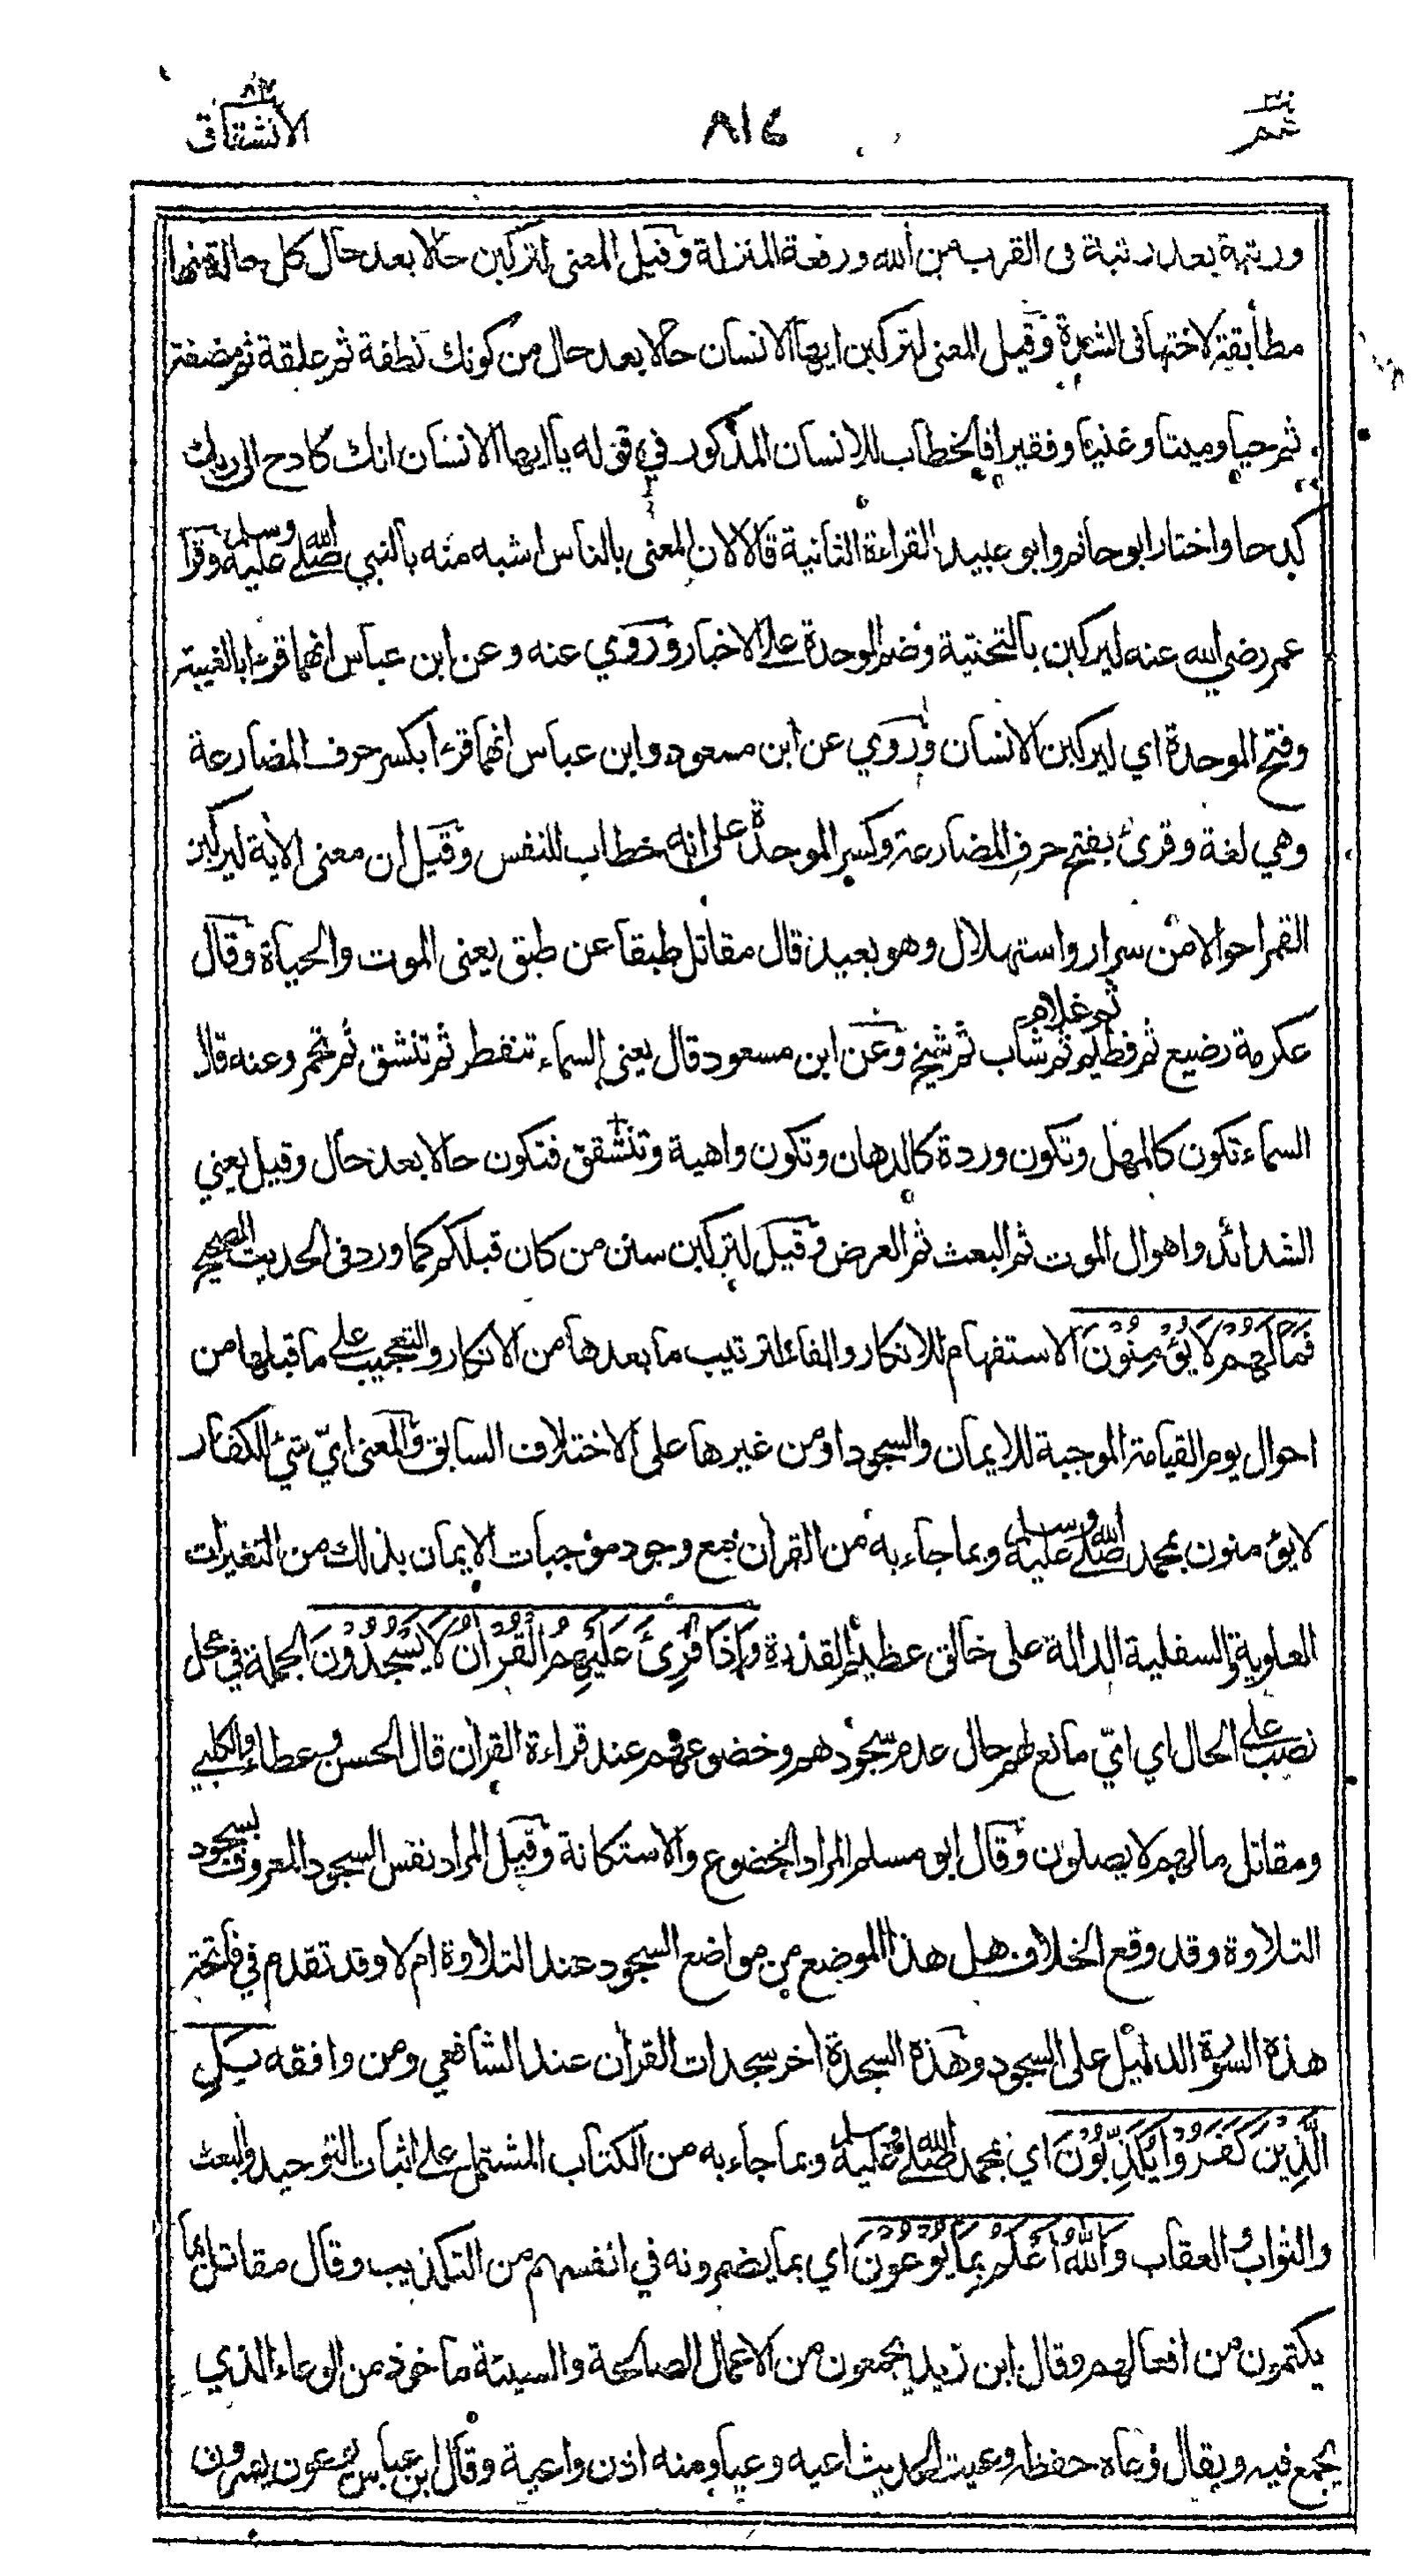 عم ٣٠
٨١٤
الانشقاق ٨٤
ورتبة بعد رتبة فى القرب من الله ورفعة المنزلة وقيل المعنى لتركبن حالا بعد حال كل حالة منها
مطابقة لاختها فى الشدة وقيل المعنى لتركبن ايها الانسان حالا بعد حال من كونك نطفة ثم علقة ثم مضغة
ثم حيا وميتا وغنيا وفقيرا فالخطاب للانسان المذكور في قوله يا ايها الانسان انك كادح الى ربك
كدحا واختار ابو حاتم وابو عبيد القراءة الثانية قالا لان المعنى بالناس اشبه منه بالنبي صلى الله عليه وسلم وقرأ
عمر رضي الله عنه ليركبن بالتحتية وضم الموحدة على الاخبار وروي عنه وعن ابن عباس انهما قرءا بالغيبة
وفتح الموحدة اي ليركبن الانسان وروي عن ابن مسعود وابن عباس انهما قرءا بكسر حرف المضارعة
وهي لغة وقرئ بفتح حرف المضارعة وكسر الموحدة على انه خطاب للنفس وقيل ان معنى الاية ليركبن
القمر احوالا من سرار واستهلال وهو بعيد قال مقاتل طبقا عن طبق يعنى الموت والحياة وقال
عكرمة رضيع ثم فطيم ثم غلام ثم شاب ثم شيخ وعن ابن مسعود قال يعنى السماء تنفطر ثم تنشق ثم تحمر وعنه قال
السماء تكون كالمهل وتكون وردة كالدهان وتكون واهية وتشقق فتكون حالا بعد حال وقيل يعني
الشدائد واهوال الموت ثم البعث ثم العرض وقيل لتركبن سنن من كان قبلكم كما ورد فى الحديث الصحيح
فَمَا لَهُمْ لَا يُؤْمِنُوْنَ الاستفهام للانكار والفاء لترتيب ما بعدها من الانكار والتعجيب على ما قبلها من
احوال يوم القيامة الموجبة للايمان والسجود او من غيرها على الاختلاف السابق والمعنى ايّ شئ للكفار
لا يؤمنون بمحمد صلى الله عليه وسلم وبما جاء به من القران مع وجود موجبات الايمان بذلك من التغيرات
العلوية والسفلية الدالة على خالق عظيم القدرة وَإِذَا قُرِئَ عَلَيْهِمُ الْقُرْاٰنُ لَا يَسْجُدُوْنَ الجملة في محل
نصب على الحال اي ايّ مانع لهم حال عدم سجودهم وخضوعهم عند قراءة القران قال الحسن وعطاء والكلبي
ومقاتل ما لهم لا يصلون وقال ابو مسلم المراد الخضوع والاستكانة وقيل المراد نفس السجود المعروف بسجود
التلاوة وقد وقع الخلاف هل هذا الموضع من مواضع السجود عند التلاوة ام لا وقد تقدم في فاتحة
هذه السورة الدليل على السجود وهذه السجدة اخر سجدات القران عند الشافعي ومن وافقه بَلِ
الَّذِيْنَ كَفَرُوْا يُكَذِّبُوْنَ اي بمحمد صلى الله عليه وسلم وبما جاء به من الكتاب المشتمل على اثبات التوحيد والبعث
والثواب والعقاب وَاللّٰهُ اَعْلَمُ بِمَا يُوْعُوْنَ اي بما يضمرونه في انفسهم من التكذيب وقال مقاتل بما
يكتمون من افعالهم وقال ابن زيد يجمعون من الاعمال الصالحة والسيئة ماخوذ من الوعاء الذي
يجمع فيه ويقال وعاه حفظه وعيت الحديث اعيه وعيا ومنه اذن واعية وقال ابن عباس يوعون يسرون